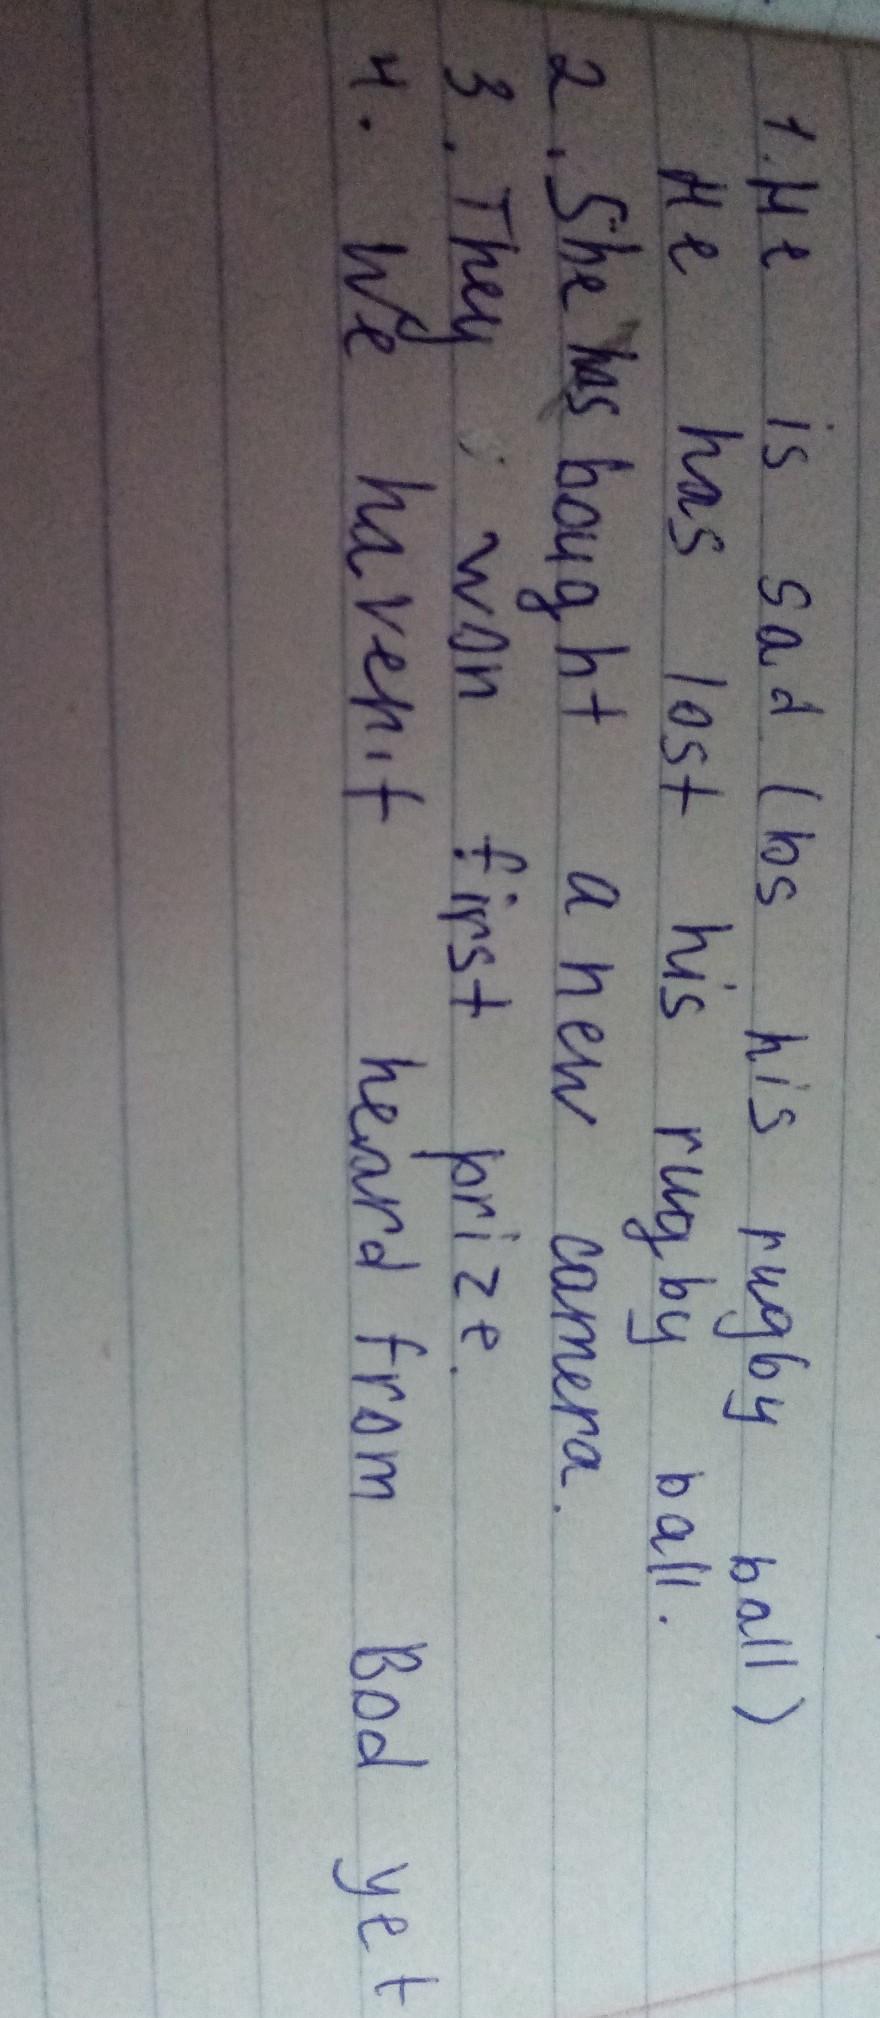 1. He is sad (los his rugby ball)
He has lost his rugby ball.
2. She has bought a new camera.
3. They won first prize.
4. We haven't heard from Bod yet